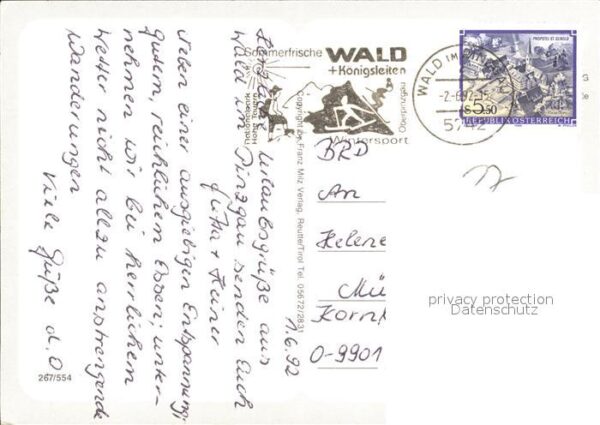 Sommerfrische WALD
+Königsleiten
Nationalpark
Hohe Tauern
Wintersport
Oberpinzgau
WALD IM
-2.-6.92
5742
PROPSTEI ST. GEROLD
S 5.50
REPUBLIK ÖSTERREICH
1.6.92
Herzliche Urlaubsgrüße aus
Wald im Pinzgau senden Euch
Jutta + Heiner
Neben einer ausgiebigen Entspannung,
gutem, reichlichem Essen; unter-
nehmen wir bei herrlichem
Wetter nicht allzu anstrengende
Wanderungen
Viele Grüße d. O
267/554
Copyright by Franz Milz Verlag, Reutte/Tirol Tel. 05672/2831
BRD
An
Helene
Mü
Kornm
O-9901
privacy protection
Datenschutz